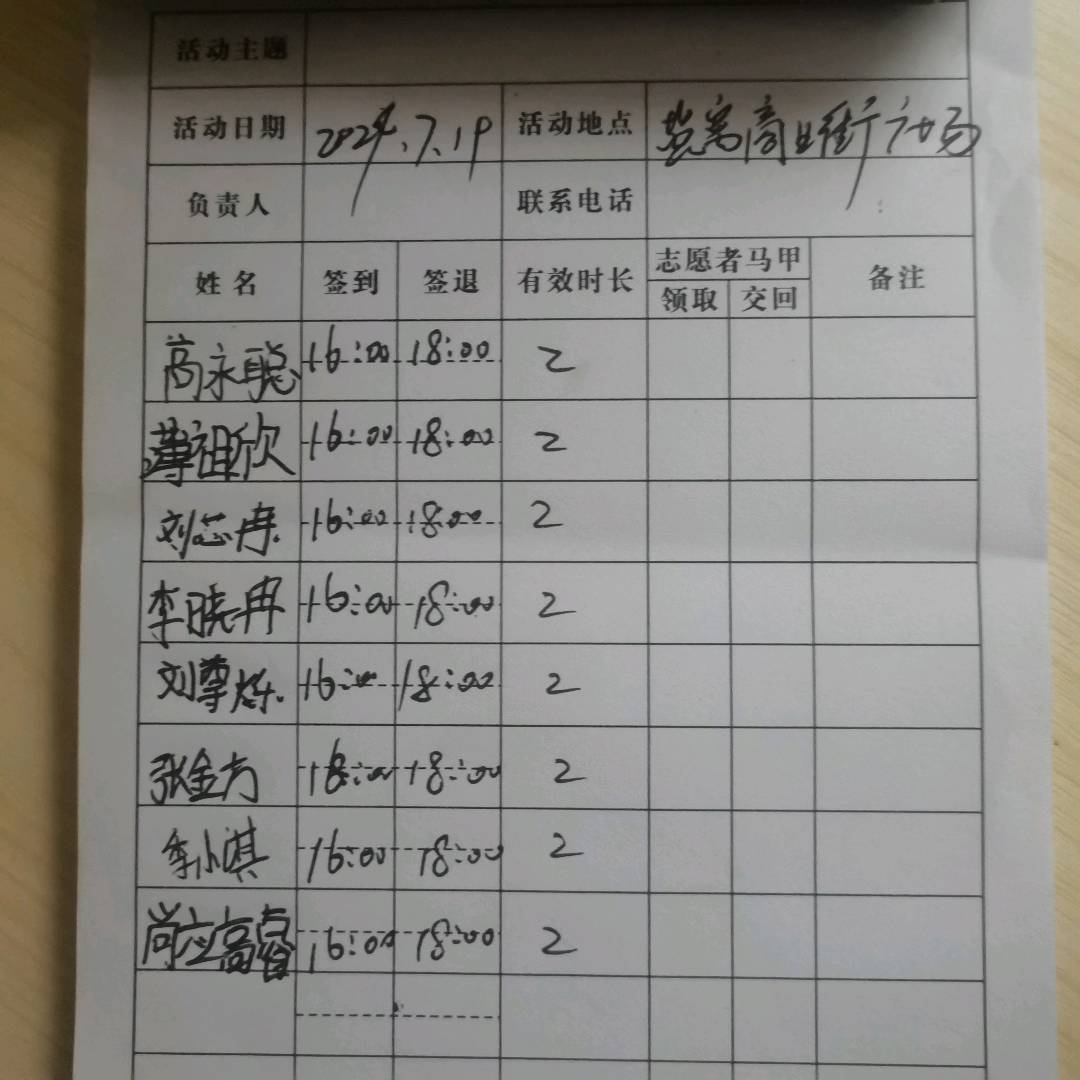 活动主题
活动日期 2024.7.19 活动地点 商业街广场
负责人 联系电话
姓名 签到 签退 有效时长 志愿者马甲 备注
领取 交回
高永聪 16:00 18:00 2
薄祖欣 16:00 18:00 2
刘芯冉 16:00 18:00 2
李晓冉 16:00 18:00 2
刘尊烁 16:00 18:00 2
张金方 18:00 18:00 2
李小淇 16:00 18:00 2
尚应高睿 16:00 18:00 2